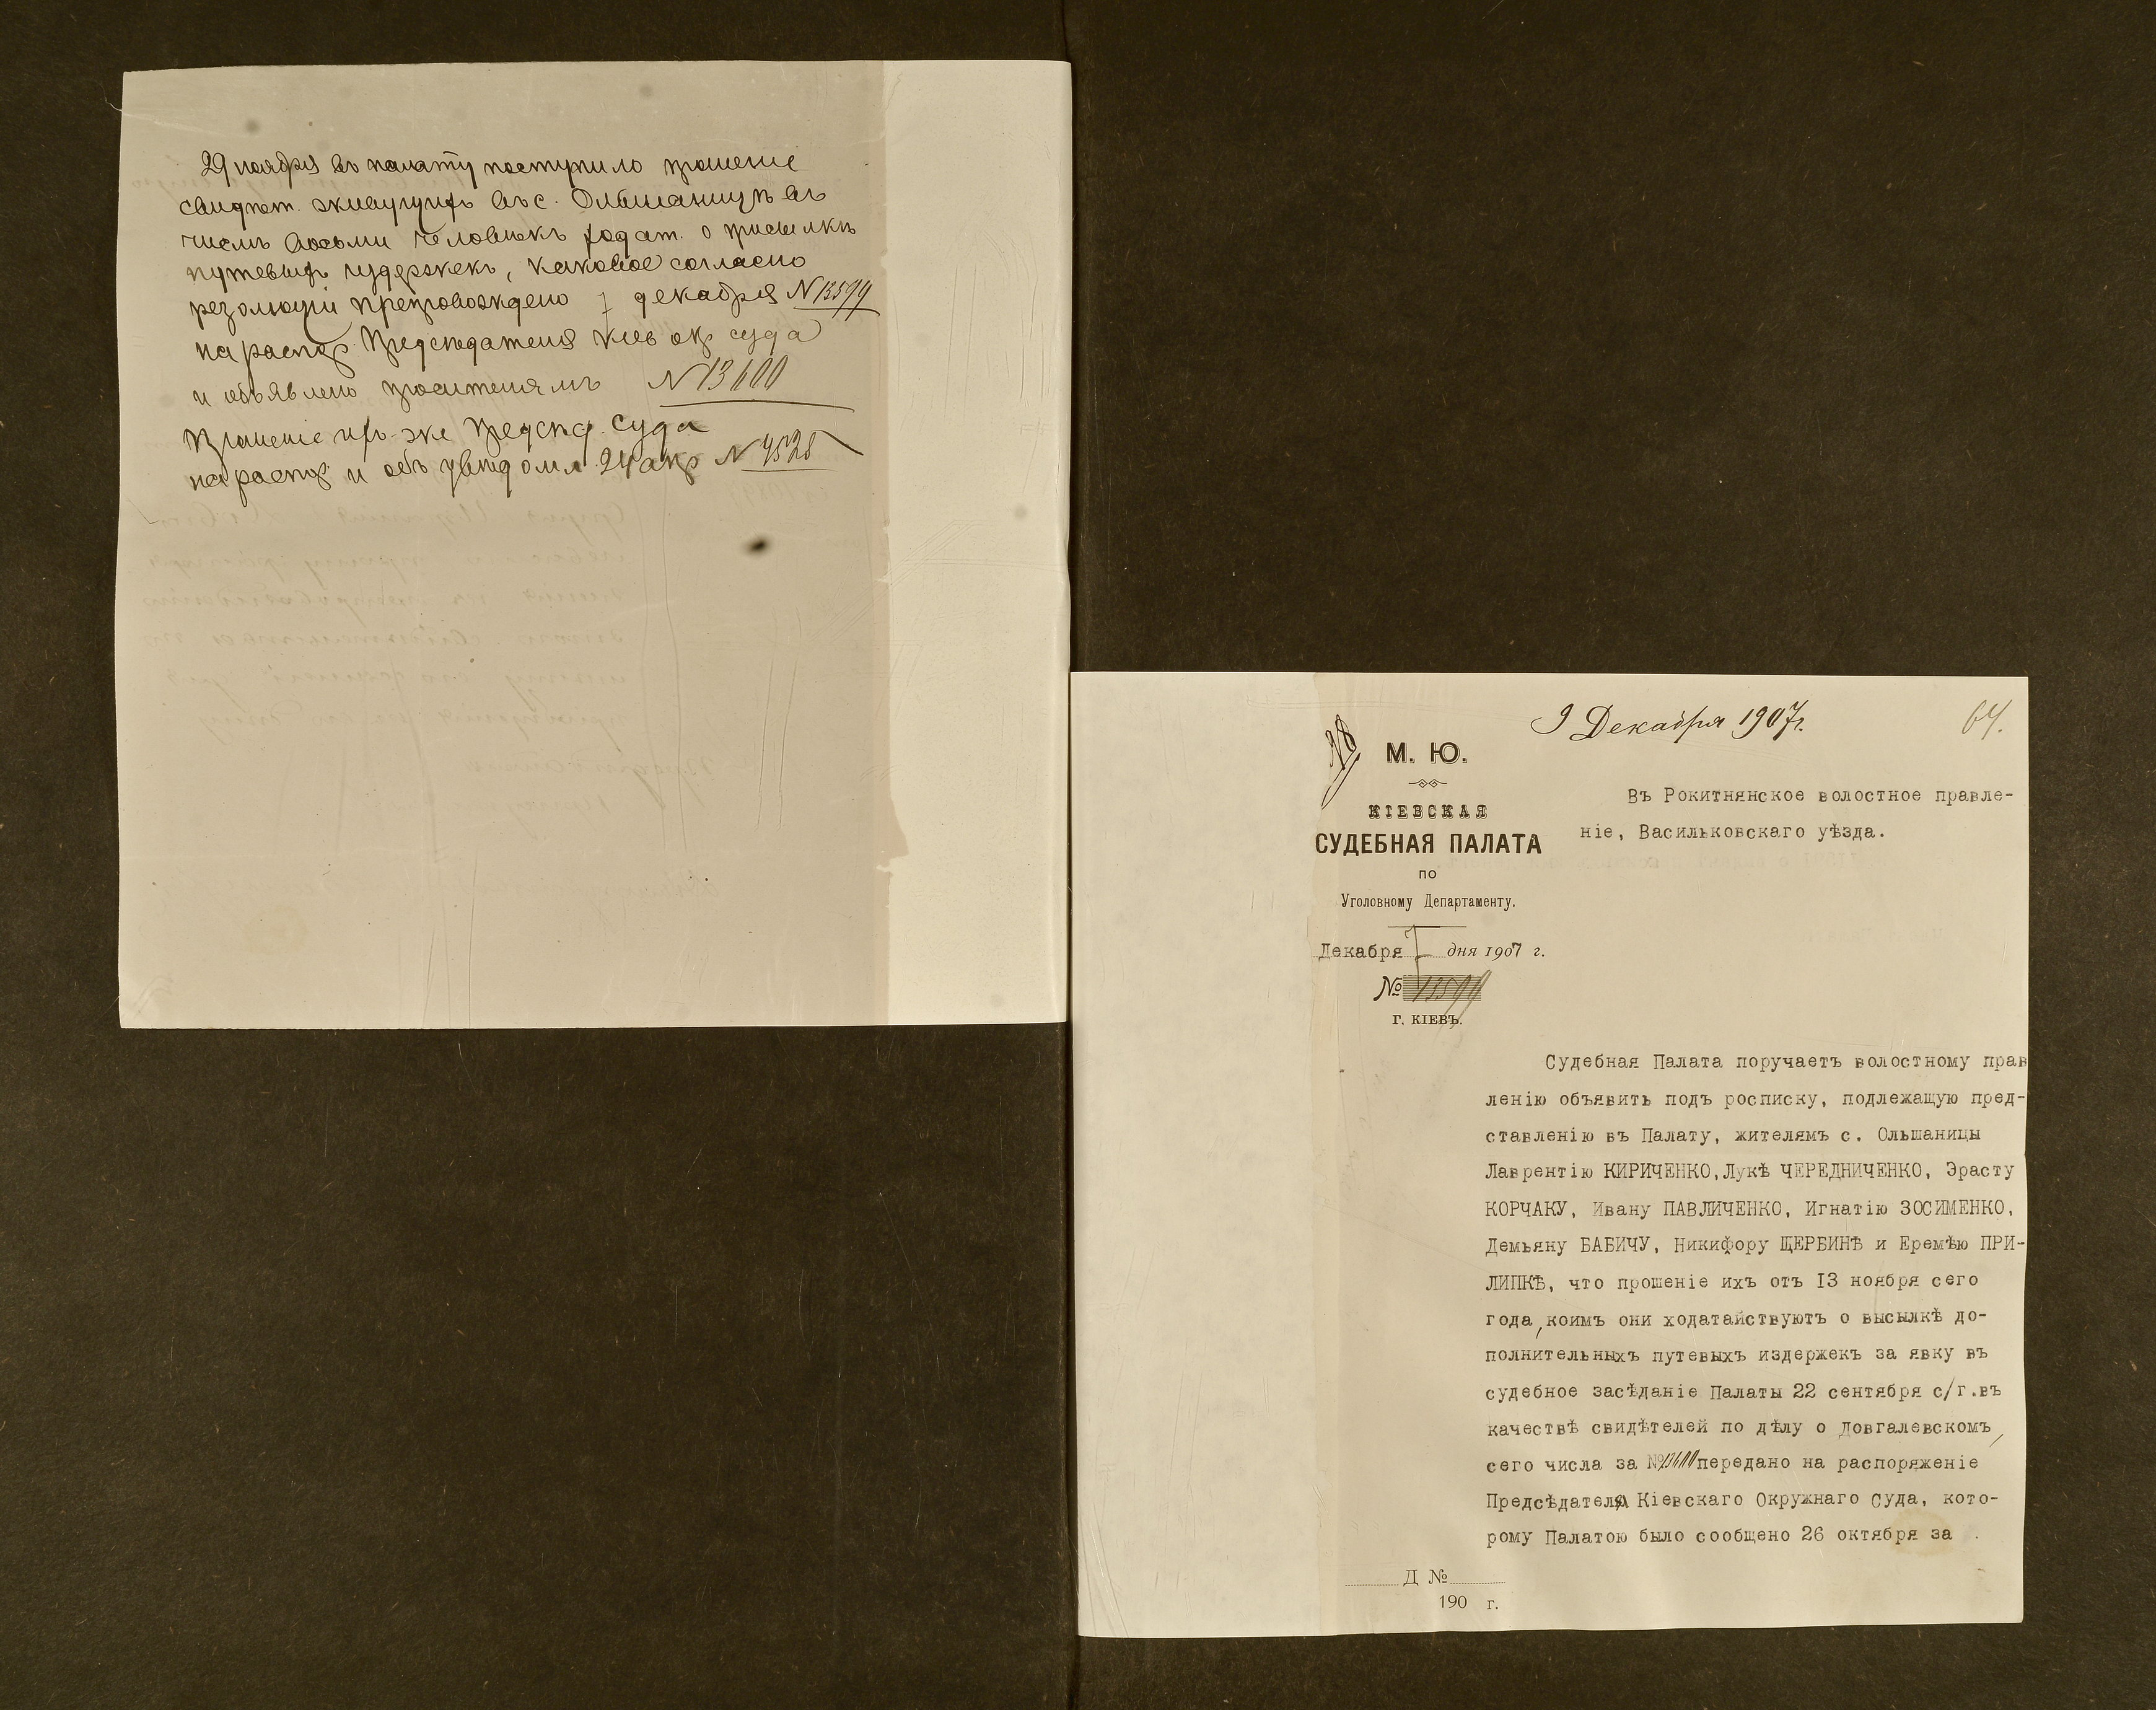 29 ноября въ палату поступило прошеніе
свидѣт. живущихъ въ с. Ольшаницѣ въ
числѣ восьми человѣкъ ходат. о присылкѣ
путевыхъ издержекъ, каковое согласно
резолюціи препровождено 7 декабря N 13599
на распор. Предсѣдателя Кіев окр суда
и объявлено просителямъ N 13600
Прошеніе ихъ-же Предсѣд. Суда
на распор и объ увѣдомл. 24 апр N 4525
9 Декабря 1907 г.
64.
М. Ю.
КІЕВСКАЯ
СУДЕБНАЯ ПАЛАТА
ПО
Уголовному Департаменту.
Декабря 7 дня 1907 г.
№ 13599
Г. КІЕВЪ.
Въ Рокитнянское волостное правле-
ніе, Васильковскаго уѣзда.
Судебная Палата поручаетъ волостному прав
ленію объявить подъ росписку, подлежащую пред-
ставленію въ Палату, жителямъ с. Ольшаницы
Лаврентію КИРИЧЕНКО, Лукѣ ЧЕРЕДНИЧЕНКО, Эрасту
КОРЧАКУ, Ивану ПАВЛИЧЕНКО, Игнатію ЗОСИМЕНКО,
Демьяну БАБИЧУ, Никифору ЩЕРБИНѢ и Еремѣю ПРИ-
ЛИПКѢ, что прошеніе ихъ отъ 13 ноября сего
года, коимъ они ходатайствуютъ о высылкѣ до-
полнительныхъ путевыхъ издержекъ за явку въ
судебное засѣданіе Палаты 22 сентября с/г. въ
качествѣ свидѣтелей по дѣлу о Довгалевскомъ,
сего числа за № 13600 передано на распоряженіе
Предсѣдателя Кіевскаго Окружнаго Суда, кото-
рому Палатою было сообщено 26 октября за
Д №
190 г.